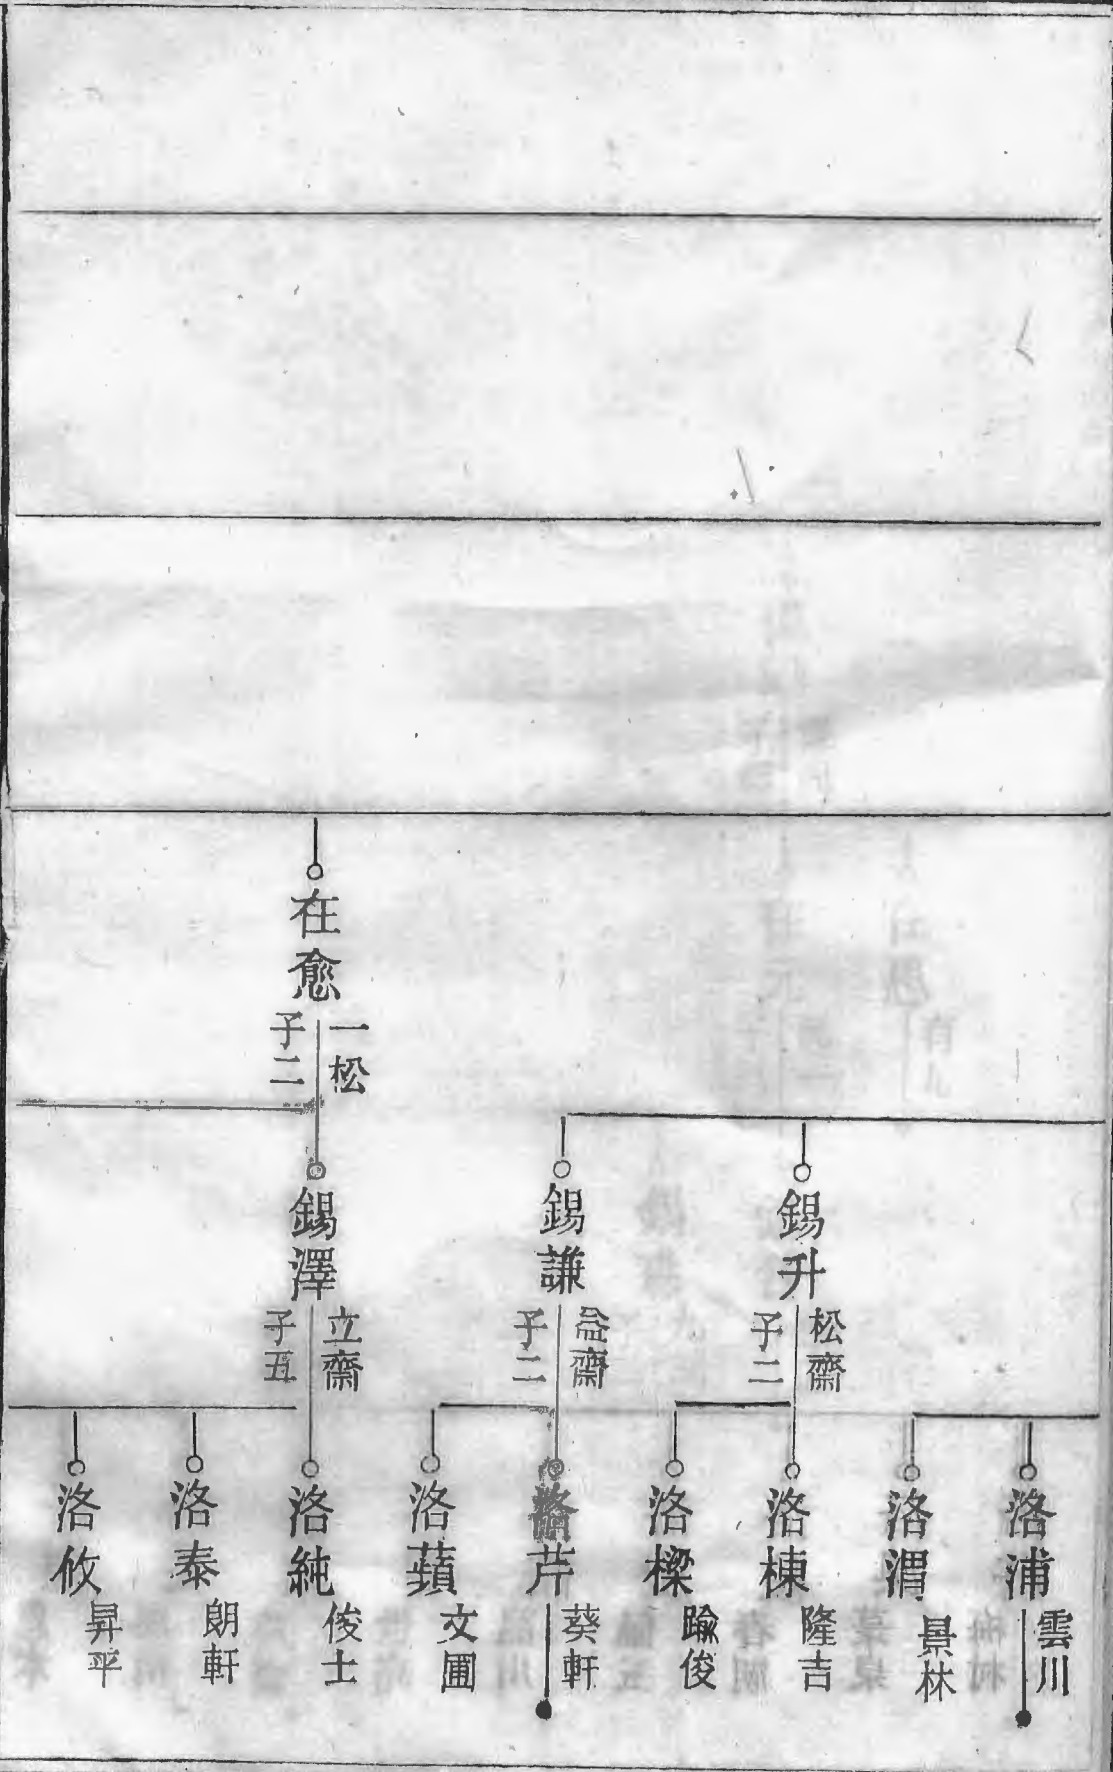 在愈
一松
子二
錫升
松齋
子二
錫謙
益齋
子二
錫澤
立齋
子五
洛浦
雲川
洛渭
景林
洛棟
隆吉
洛樑
踰俊
洛芹
葵軒
洛蘋
文圃
洛純
俊士
洛泰
朗軒
洛攸
昇平